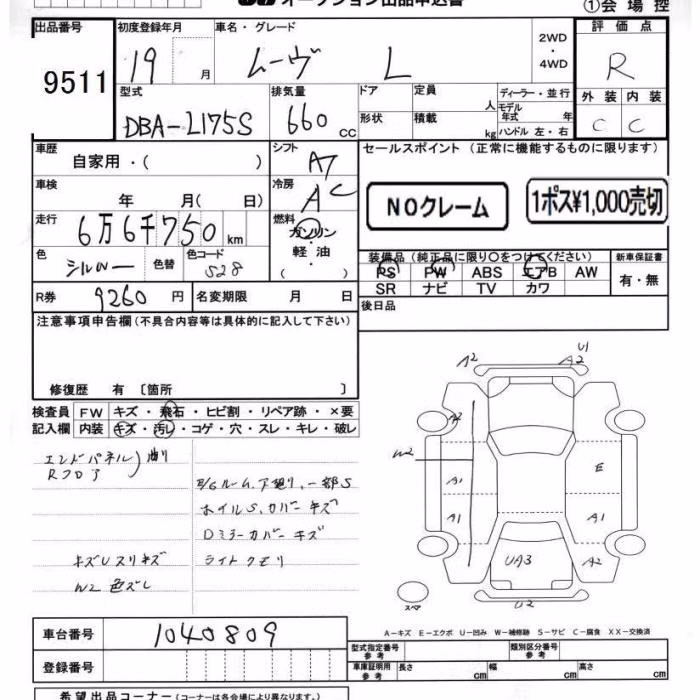 オークション出品申込書
①会場控
出品番号
9511
初度登録年月
19 月
車名・グレード
ムーヴ L
2WD
・
4WD
評価点
R
型式
DBA-L175S
排気量
660 cc
ドア
形状
定員
人
積載
kg
ディーラー・並行
モデル年式 年
ハンドル 左・右
外装 内装
C C
車歴
自家用・( )
シフト
AT
車検
年 月( 日)
冷房
AC
走行
6万6千750 km
燃料
ガソリン
・
軽油
( )
色
シルバー
色替
色コード
S28
R券
9260 円
名変期限 月 日
セールスポイント(正常に機能するものに限ります)
NOクレーム
1ポス¥1,000売切
装備品(純正品に限り○をつけてください)
PS PW ABS エアB AW
SR ナビ TV カワ
新車保証書
有・無
後日品
注意事項申告欄(不具合内容等は具体的に記入して下さい)
修復歴 有〔箇所 〕
検査員記入欄
FW キズ・飛石・ヒビ割・リペア跡・×要
内装 キズ・汚レ・コゲ・穴・スレ・キレ・破レ
エンドパネル
Rフロア
キズUスリキズ
W2 色ズレ
ホイルS,カバーキズ
Dミラーカバーキズ
ライトクモリ
A2
U1
A2
A2
W2
A1
E
A1
A1
UA3
A2
U2
スペア
A-キズ E-エクボ U-凹み W-補修跡 S-サビ C-腐食 XX-交換済
車台番号
1040809
登録番号
型式指定番号
参考
類別区分番号
参考
車庫証明用
参考
長さ cm
幅 cm
高さ cm
希望出品コーナー(コーナーは各会場により異なります。)